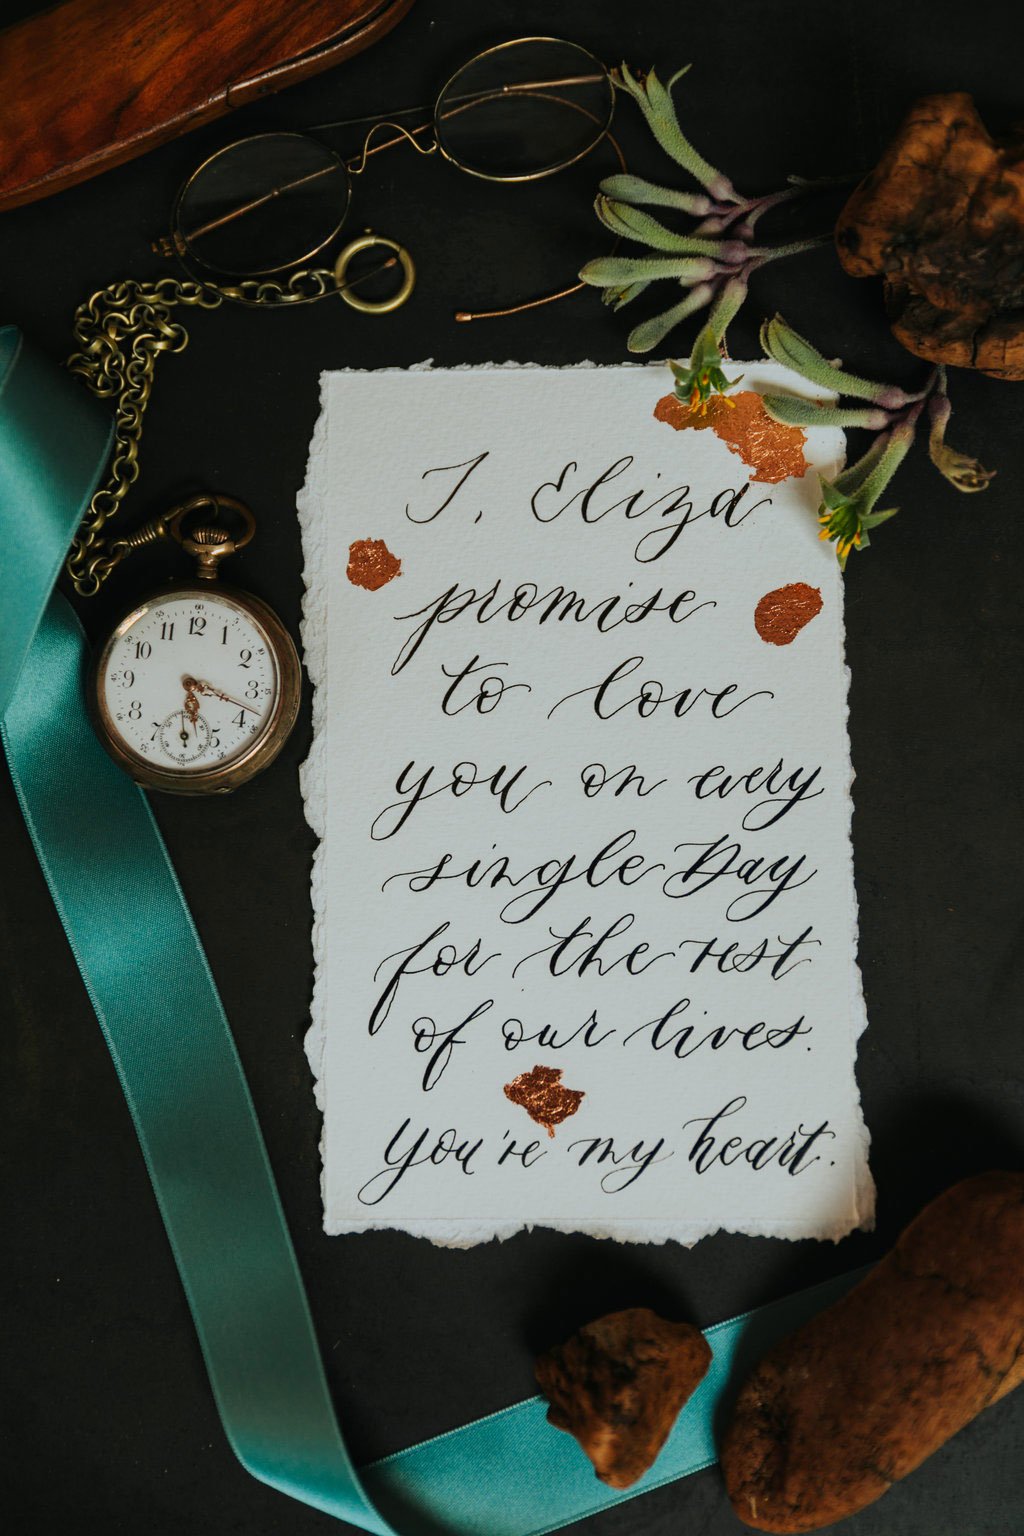 I, Eliza
promise
to love
you on every
single Day
for the rest
of our lives.
You're my heart.
60
12
11
1
10
2
9
3
8
4
7
5